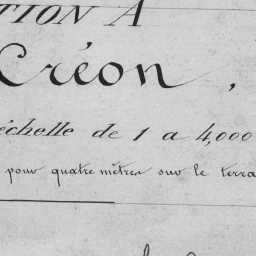 TION A
Créon,
échelle de 1 a 4,000
pour quatre mètres sur le terra